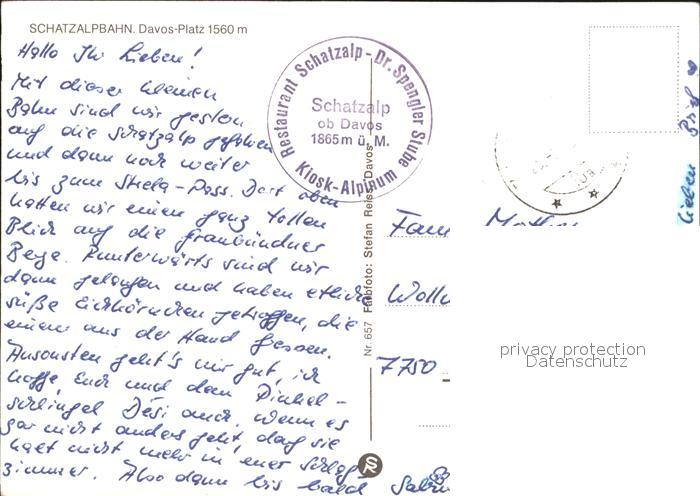 SCHATZALPBAHN. Davos-Platz 1560 m
Hallo Ihr Lieben!
Mit dieser kleinen
Bahn sind wir gestern
auf die Schatzalp gefahren
und dann noch weiter
bis zum Strela-Pass. Dort oben
hatten wir einen ganz tollen
Blick auf die graubündner
Berge. Runterwärts sind wir
dann gelaufen und haben etliche
süße Eichhörnchen getroffen, die
einem aus der Hand fressen.
Ansonsten geht's mir gut, ich
hoffe, Euch und dem
Desi auch, wenn es
gar nicht anders geht, darf sie
halt nicht mehr in euer Schlaf-
zimmer. Also dann bis bald
Restaurant Schatzalp - Dr. Spengler Stube
Schatzalp
ob Davos
1865 m ü. M.
Kiosk-Alpinum
Nr. 657 Farbfoto: Stefan Reiss, Davos
Fam
7750
lieben
privacy protection
Datenschutz